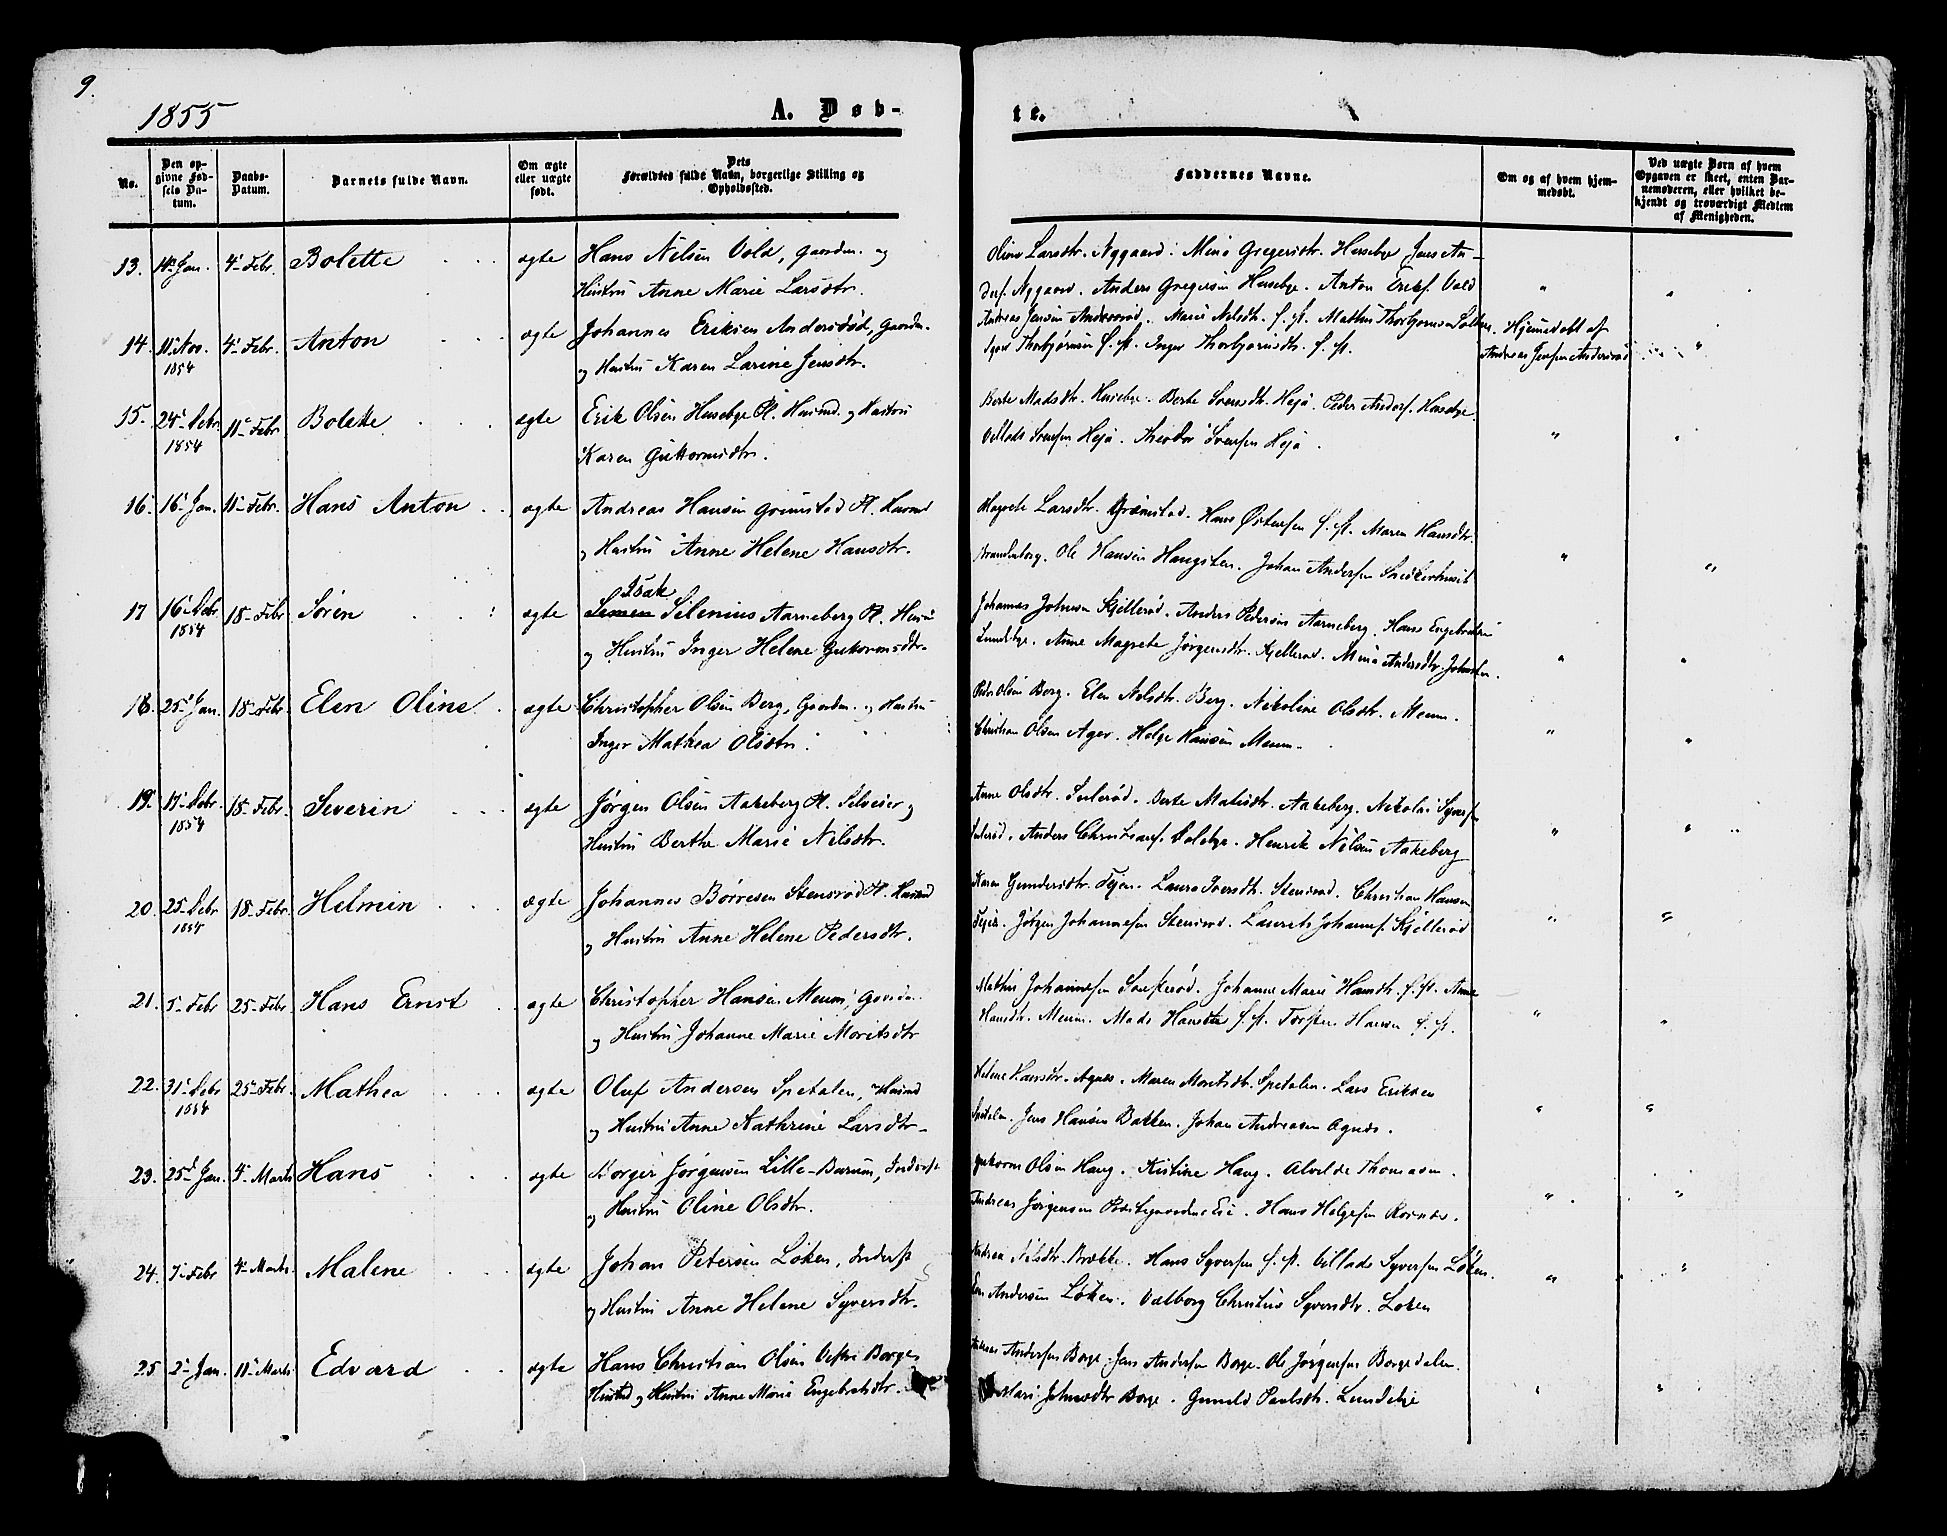 9.
1855
A. Døb-
te.
No.
Den op-
givne Fød-
sels Da-
tum.
Daabs-
Datum.
Barnets fulde Navn.
Om ægte
eller uægte
født.
Dets
Forældres fulde Navn, borgerlige Stilling og
Opholdssted.
Faddernes Navne.
Om og af hvem hjem-
medøbt.
Ved uægte Børn af hvem
Opgaven er skeet, enten Bar-
nemoderen, eller hvilket be-
kjendt og troværdigt Medlem
af Menigheden.
13. 14 Jan. 4 Febr. Bolette ægte Hans Nilsen Vold, Gaardm. og
Hustru Anne Marie Larsdtr.
Larsdtr. Nygaard. Gregersdtr. Husebye Jens An-
ders. Nygaard. Anders Gregersen Husebye. Anton Eriks. Vold
14. 11 Nov. 4 Febr. Anton ægte Johannes Eriksen Andersrød, Gaardm.
1854 og Hustru Karen Larine Jensdtr.
Andreas Jensen Andersrød. Marie Nilsdtr.
Inger Thorbjørnsdtr.
Hjemmedøbt af
Andreas Jensen Andersrød
15. 24 Debr. 11 Febr. Bolette ægte Erik Olsen Husebye Pl. Husmd. og Hustru
1854 Karen Guttormsdtr.
Berte Madsdtr. Husebye. Berte Svensdtr. Hejä. Peder Anders. Husebye.
Svensen Hejä. Theodor Svensen Hejä.
16. 16 Jan. 11 Febr. Hans Anton ægte Andreas Hansen Grimstad Pl. Husmd
og Hustru Anne Helene Hansdtr.
Magrete Larsdtr. Grimstad. Hans Østensen Maren Hansdtr.
Ole Hansen Haugsten. Johan Andersen
17 16 Debr. 18 Febr. Søren ægte Isak
1854 Simen Silenius Aarneberg Pl.
og Hustru Inger Helene Guttormsdtr.
Johannes Johnsen Kjellerød. Anders Pedersen Aarneberg. Hans Engebretsen
Lundebye. Anne Magrete Jørgensdtr. Kjellerød. Andersdtr.
18. 25 Jan. 18 Febr. Elen Oline ægte Christopher Olsen Berg, Gaardm. og Hustru
Inger Mathea Olsdtr.
Peder Olsen Berg. Elen Nilsdtr. Berg. Nikoline Olsdtr. Meum.
Christian Olsen Ager. Helge Hansen Meum.
19. 17 Debr. 18 Febr. Severin ægte Jørgen Olsen Aakeberg Pl. Selveier og
1854 Hustru Berthe Marie Nilsdtr.
Anne Olsdtr. Berte Aakeberg. Nikolai
Anders Christians. Henrik Nilsen Aakeberg
20. 25 Debr 18 Febr. Helmin ægte Johannes Børresen Stensrød Pl. Husmd
1854 og Hustru Anne Helene Pedersdtr.
Karen Gundersdtr. Tejen. Iversdtr. Stensrød. Christian Hansen
Tejen. Jørgen Johannesen Stensrød. Laurits Johannes. Kjellerød
21. 5 Febr 25 Febr Hans Ernst ægte Christopher Hansen Meum, Gaardm.
og Hustru Johanne Marie Moritsdtr
Johannesen Johanne Marie Hansdtr. Anne
Hansdtr. Meum. Mads Torsten Hansen
22. 31 Debr 25 Febr. Mathea ægte Oluf Andersen Spetalen, Husmd
1854 og Hustru Anne Kathrine Larsdtr.
Helene Hansdtr. Agnes. Maren Moritsdtr. Spetalen. Lars Eriksen
Spetalen. Jens Hansen Bakken. Johan Andreasen Agnes.
23. 25 Jan. 4 Marts Hans ægte Borger Jørgensen Lille-Burum, Inderst
og Hustru Oline Olsdtr.
Guttorm Olsen Haug. Kistine Haug. Alvilde Thomasen.
Andreas Jørgensen Hans Helgesen
24. 7 Febr 4 Marts. Malene ægte Johan Petersen Løken, Inderst
og Hustru Anne Helene Syversdtr.
Andrea Nilsdtr. Brække. Hans Syversen Syversen Løken.
Andersen Løken. Valborg Christine Syversdtr. Løken
25 2 Jan. 11 Marts Edvard ægte Hans Christian Olsen Vestre Borge,
Husmd og Hustru Anne Marie Engebretsdtr.
Andersen Borge. Jens Andersen Borge. Ole Jørgensen Borgedalen.
Borge. Gunild Paulsdtr. Lundebye